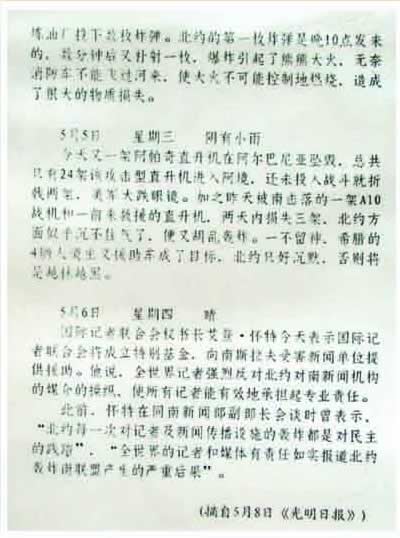 炼油厂投下数枚炸弹。北约的第一枚炸弹是晚10点发来
的，数分钟后又补射一枚，爆炸引起了熊熊大火，无奈
消防车不能飞过河来，使大火不可能控制地燃烧，造成
了很大的物质损失。
5月5日 星期三 阴有小雨
今天又一架阿帕奇直升机在阿尔巴尼亚坠毁，总共
只有24架该攻击型直升机进入阿境，还未投入战斗就折
戟两架，美军大跌眼镜。加之昨天被南击落的一架A10
战机和一前来救援的直升机，两天内损失三架，北约方
面似乎沉不住气了，便又胡乱轰炸。一不留神，希腊的
4辆人道主义援助车成了目标，北约只好沉默，否则将
是越抹越黑。
5月6日 星期四 晴
国际记者联合会秘书长艾登·怀特今天表示国际记
者联合会将成立特别基金，向南斯拉夫受害新闻单位提
供援助。他说，全世界记者强烈反对北约对南新闻机构
的媒介的操纵，使所有记者能有效地承担起专业责任。
此前，怀特在同南新闻部副部长会谈时曾表示，
“北约每一次对记者及新闻传播设施的轰炸都是对民主
的践踏”，“全世界的记者和媒体有责任如实报道北约
轰炸南联盟产生的严重后果”。
(摘自5月8日《光明日报》)